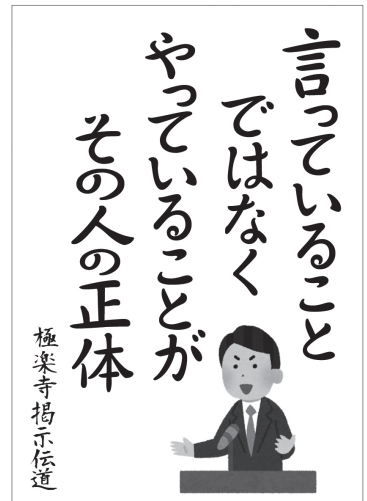 言っていること
ではなく
やっていることが
その人の正体
極楽寺掲示伝道